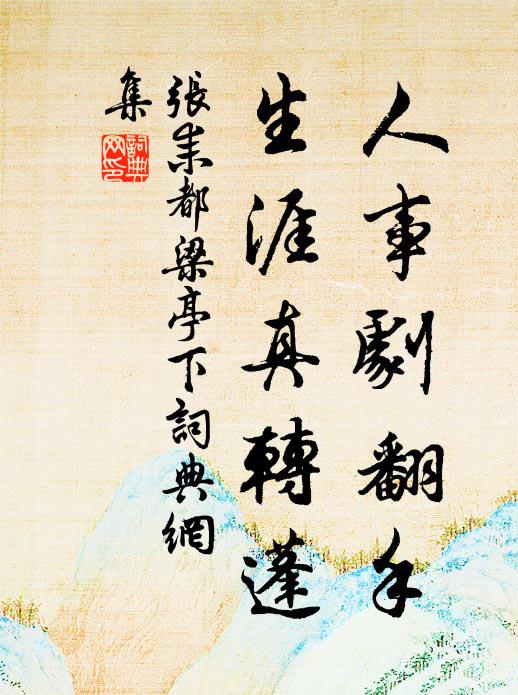 人事劇翻手
生涯真轉蓬
張耒都梁亭下詞典網
集
詞典网印